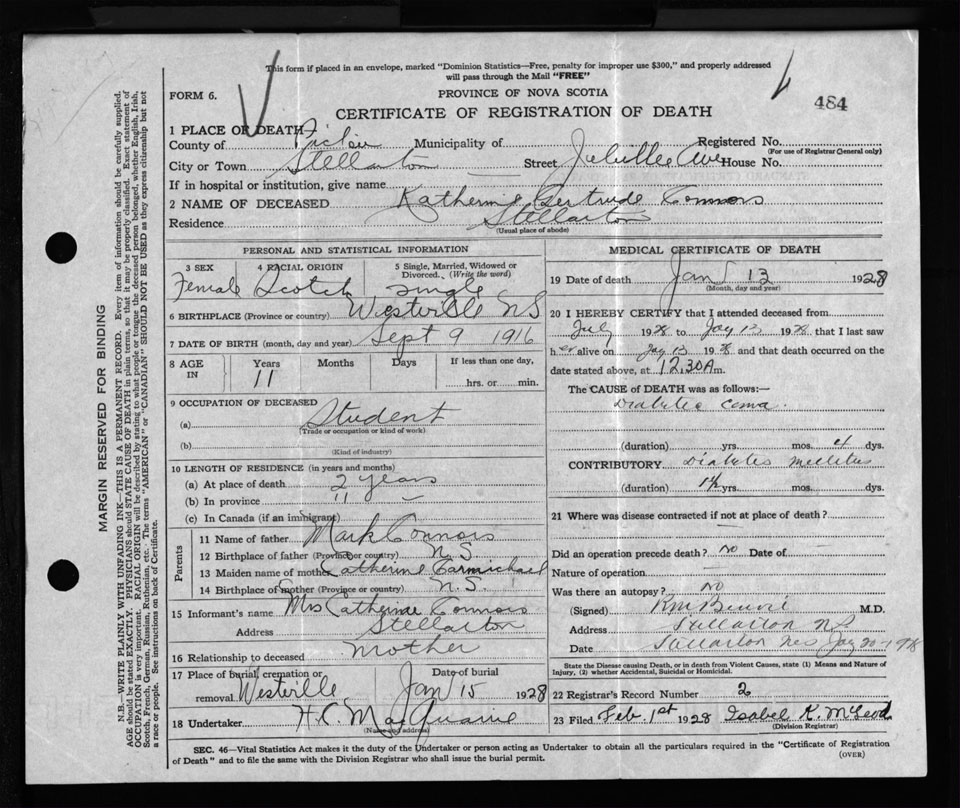 This form if placed in an envelope, marked "Dominion Statistics—Free, penalty for improper use $300," and properly addressed
will pass through the Mail "FREE"
FORM 6.
PROVINCE OF NOVA SCOTIA
484
CERTIFICATE OF REGISTRATION OF DEATH
1 PLACE OF DEATH
County of Pictou Municipality of Registered No.
(For use of Registrar General only)
City or Town Stellarton Street Ave House No.
If in hospital or institution, give name
2 NAME OF DECEASED Katherine Gertrude Connors
Residence Stellarton
(Usual place of abode)
PERSONAL AND STATISTICAL INFORMATION
3 SEX Female
4 RACIAL ORIGIN Scotch
5 Single, Married, Widowed or Divorced. (Write the word) single
6 BIRTHPLACE (Province or country) Westville NS
7 DATE OF BIRTH (month, day and year) Sept 9 1916
8 AGE IN Years Months Days If less than one day,
11 hrs. or min.
9 OCCUPATION OF DECEASED
(a) Student
(Trade or occupation or kind of work)
(b)
(Kind of industry)
10 LENGTH OF RESIDENCE (in years and months)
(a) At place of death 2 years
(b) In province 11 –
(c) In Canada (if an immigrant)
Parents
11 Name of father Mark Connors
12 Birthplace of father (Province or country) N.S.
13 Maiden name of mother Catherine Carmichael
14 Birthplace of mother (Province or country) N.S.
15 Informant's name Mrs Catherine Connors
Address Stellarton
16 Relationship to deceased mother
17 Place of burial, cremation or removal Westville
Date of burial Jan 15 1928
18 Undertaker H.C. MacQuarrie
(Name and address)
MEDICAL CERTIFICATE OF DEATH
19 Date of death Jan 13 1928
(Month, day and year)
20 I HEREBY CERTIFY that I attended deceased from
July 192 to Jay 13 192 that I last saw
her alive on Jay 13 192 and that death occurred on the
date stated above, at 12.30 A m.
The CAUSE of DEATH was as follows:—
Diabetic coma.
(duration) yrs. mos. 4 dys.
CONTRIBUTORY Diabetes mellitus
(duration) 1½ yrs. mos. dys.
21 Where was disease contracted if not at place of death?
Did an operation precede death? no Date of
Nature of operation
Was there an autopsy? no
(Signed) M.D.
Address Stellarton NS
Date Stellarton
State the Disease causing Death, or in death from Violent Causes, state (1) Means and Nature of
Injury, (2) whether Accidental, Suicidal or Homicidal.
22 Registrar's Record Number 2
23 Filed Feb. 1st 1928 Isabel K. McLeod
(Division Registrar)
SEC. 46—Vital Statistics Act makes it the duty of the Undertaker or person acting as Undertaker to obtain all the particulars required in the "Certificate of Registration
of Death" and to file the same with the Division Registrar who shall issue the burial permit.
(OVER)
MARGIN RESERVED FOR BINDING
N.B.—WRITE PLAINLY WITH UNFADING INK—THIS IS A PERMANENT RECORD. Every item of information should be carefully supplied.
AGE should be stated EXACTLY. PHYSICIANS should STATE CAUSE OF DEATH in plain terms, so that it may be properly classified. Exact statement of
OCCUPATION is very important. RACIAL ORIGIN will be described by stating to what people or tongue the deceased person belonged, whether English, Irish,
Scotch, French, German, Russian, Ruthenian, etc. The terms "AMERICAN" or "CANADIAN" SHOULD NOT BE USED as they express citizenship but not
a race or people. See instructions on back of Certificate.